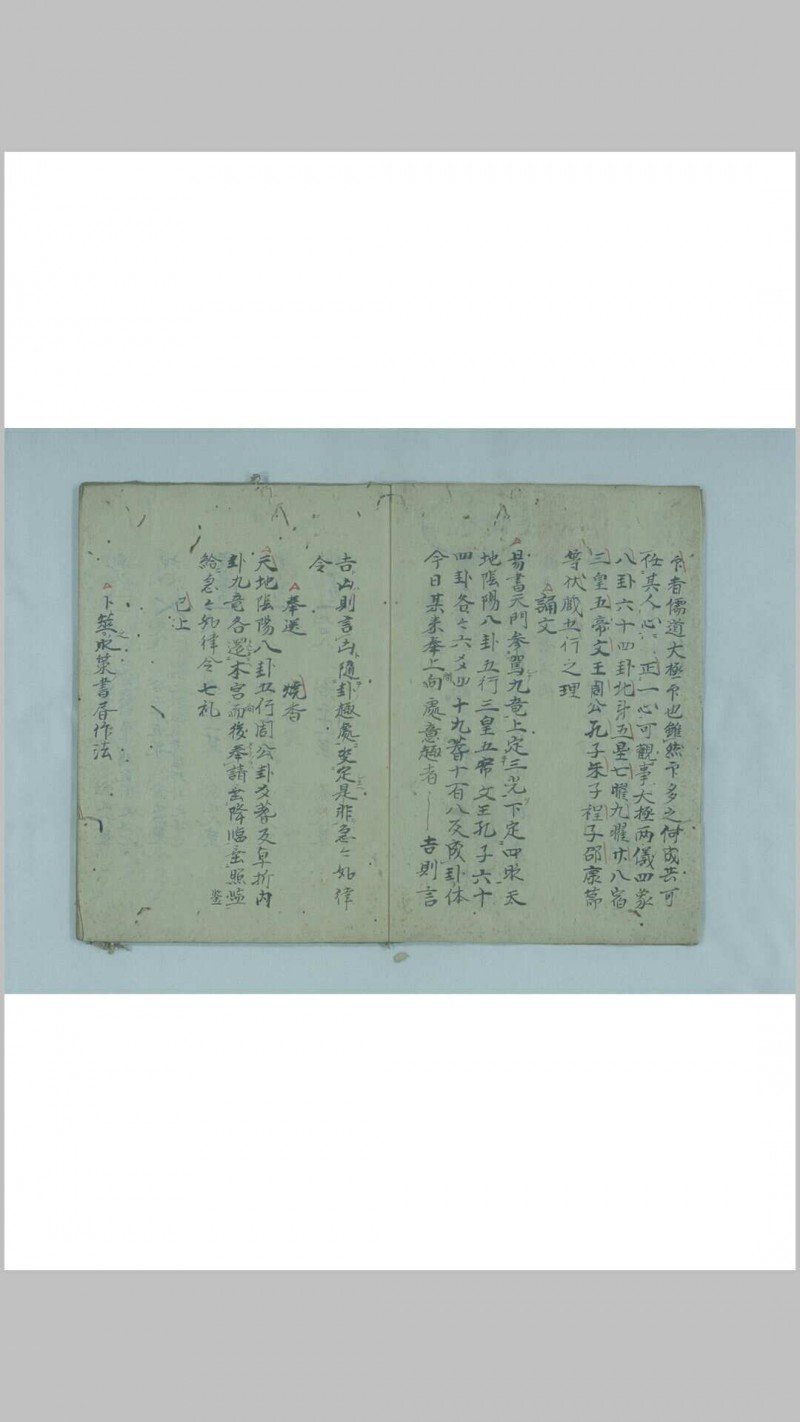 者儒道大極也雖然多之何成共可
任其人心正一心可觀事大極两儀四象
八卦六十四卦北斗五星七曜九曜廿八宿
三皇五帝文王周公孔子朱子程子邵康節
等伏藏五行之理
誦文
易書天門參駕九竜上定三光下定四天
地陰陽八卦五行三皇五帝文王孔子六十
四卦各々六爻四十九蓍十有八反成卦体
今日某来奉上向處意趣者吉則言
吉凶則言凶随卦趣處定是非急々如律
令
奉送 燒香
天地陰陽八卦五行周公卦爻蓍及内
卦九竜各還本宮而後奉請降臨垂照
給急々如律令 七礼
已上
卜筮書作法